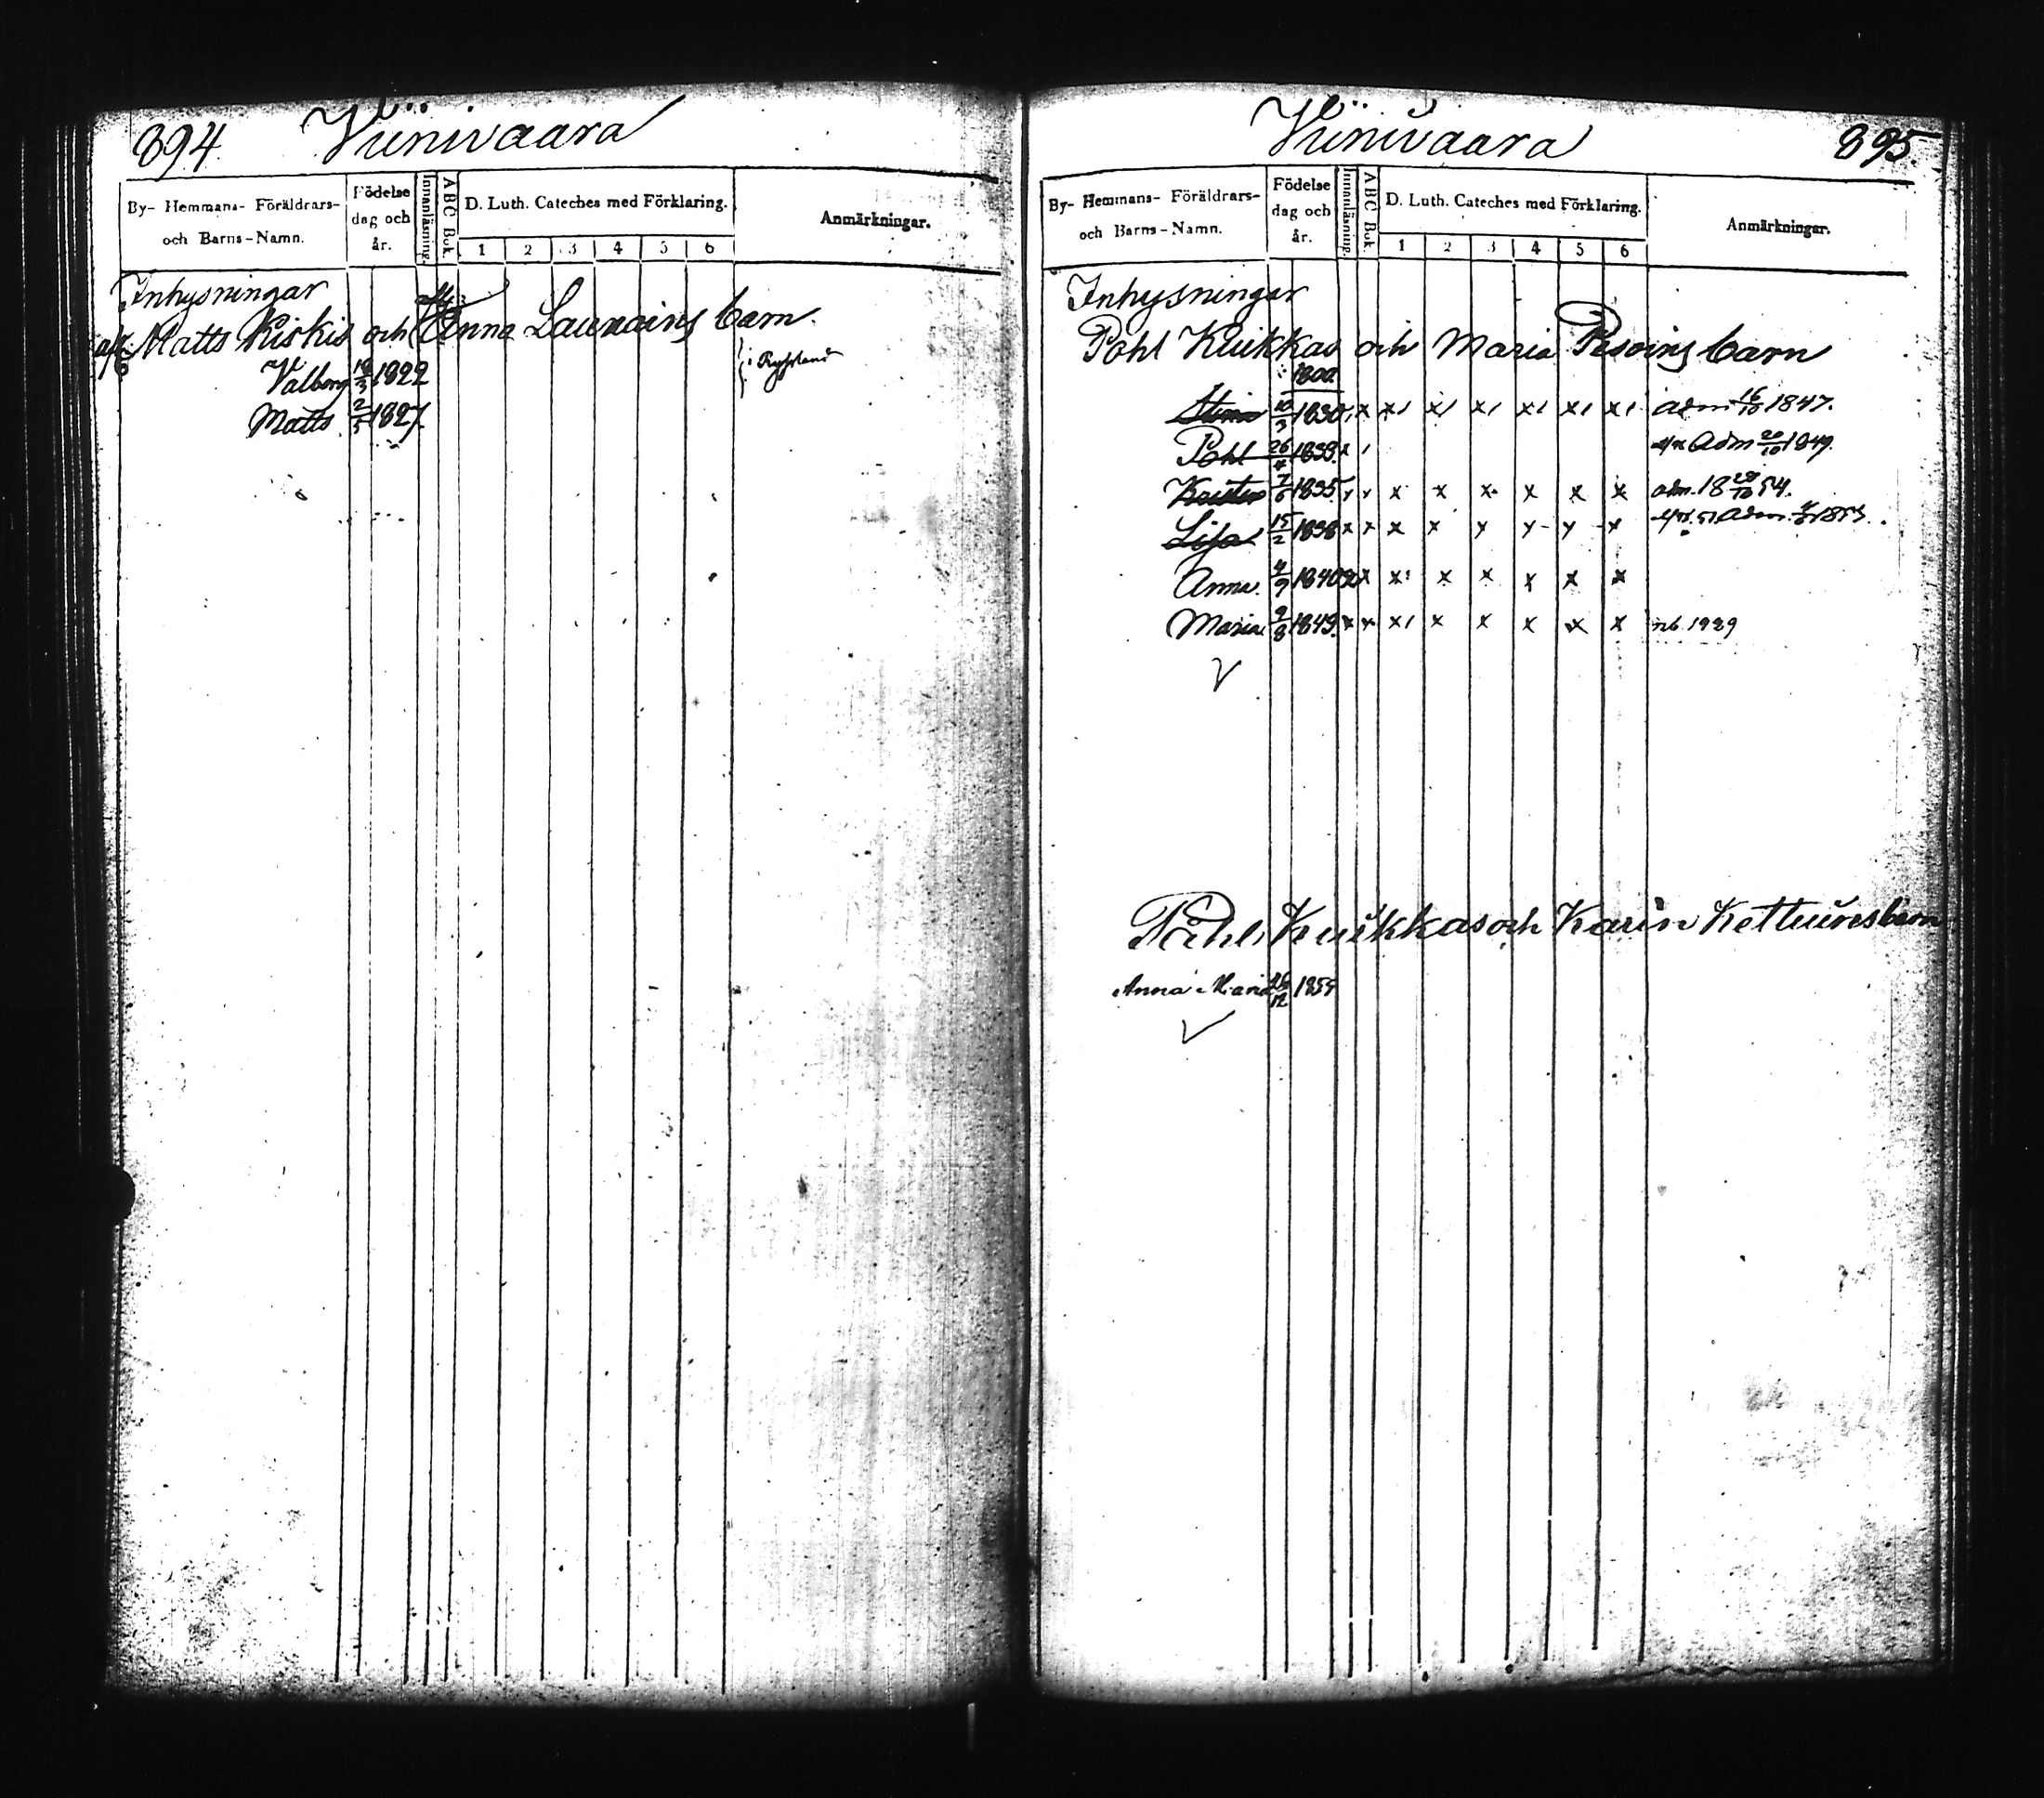 894. Viinivaara
By- Hemmans- Föräldrars- och Barns-Namn. Födelse dag och år. Innanläsning. ABC Bok. D. Luth. Cateches med Förklaring. 1 2 3 4 5 6 Anmärkningar.
Inhysningar
Matts Kiskis och Anna Launains barn.
Valborg 18/3 1822 i Ryssland
Matts 2/5 1827.
Viinivaara 895.
By- Hemmans- Föräldrars- och Barns-Namn. Födelse dag och år. Innanläsning. ABC Bok. D. Luth. Cateches med Förklaring. 1 2 3 4 5 6 Anmärkningar.
Inhysningar
Pohl Kuikkas och Maria Pesoins barn
1800
Stina 10/3 1830 x x x x x x x adm 16/10 1847.
Pohl 26/4 1833. x Adm 20/10 1849.
7/6 1835 x x x x x x adm. 18 54.
Lisa 15/2 1838 x x x x x x x x Adm. 1853.
Anna. 4/9 1840 x x x x x x x
Maria 2/8 1849. x x x x x x x x
Påhl Kuikkas och Karin Kettuines barn
Anna Maria 26/12 1855